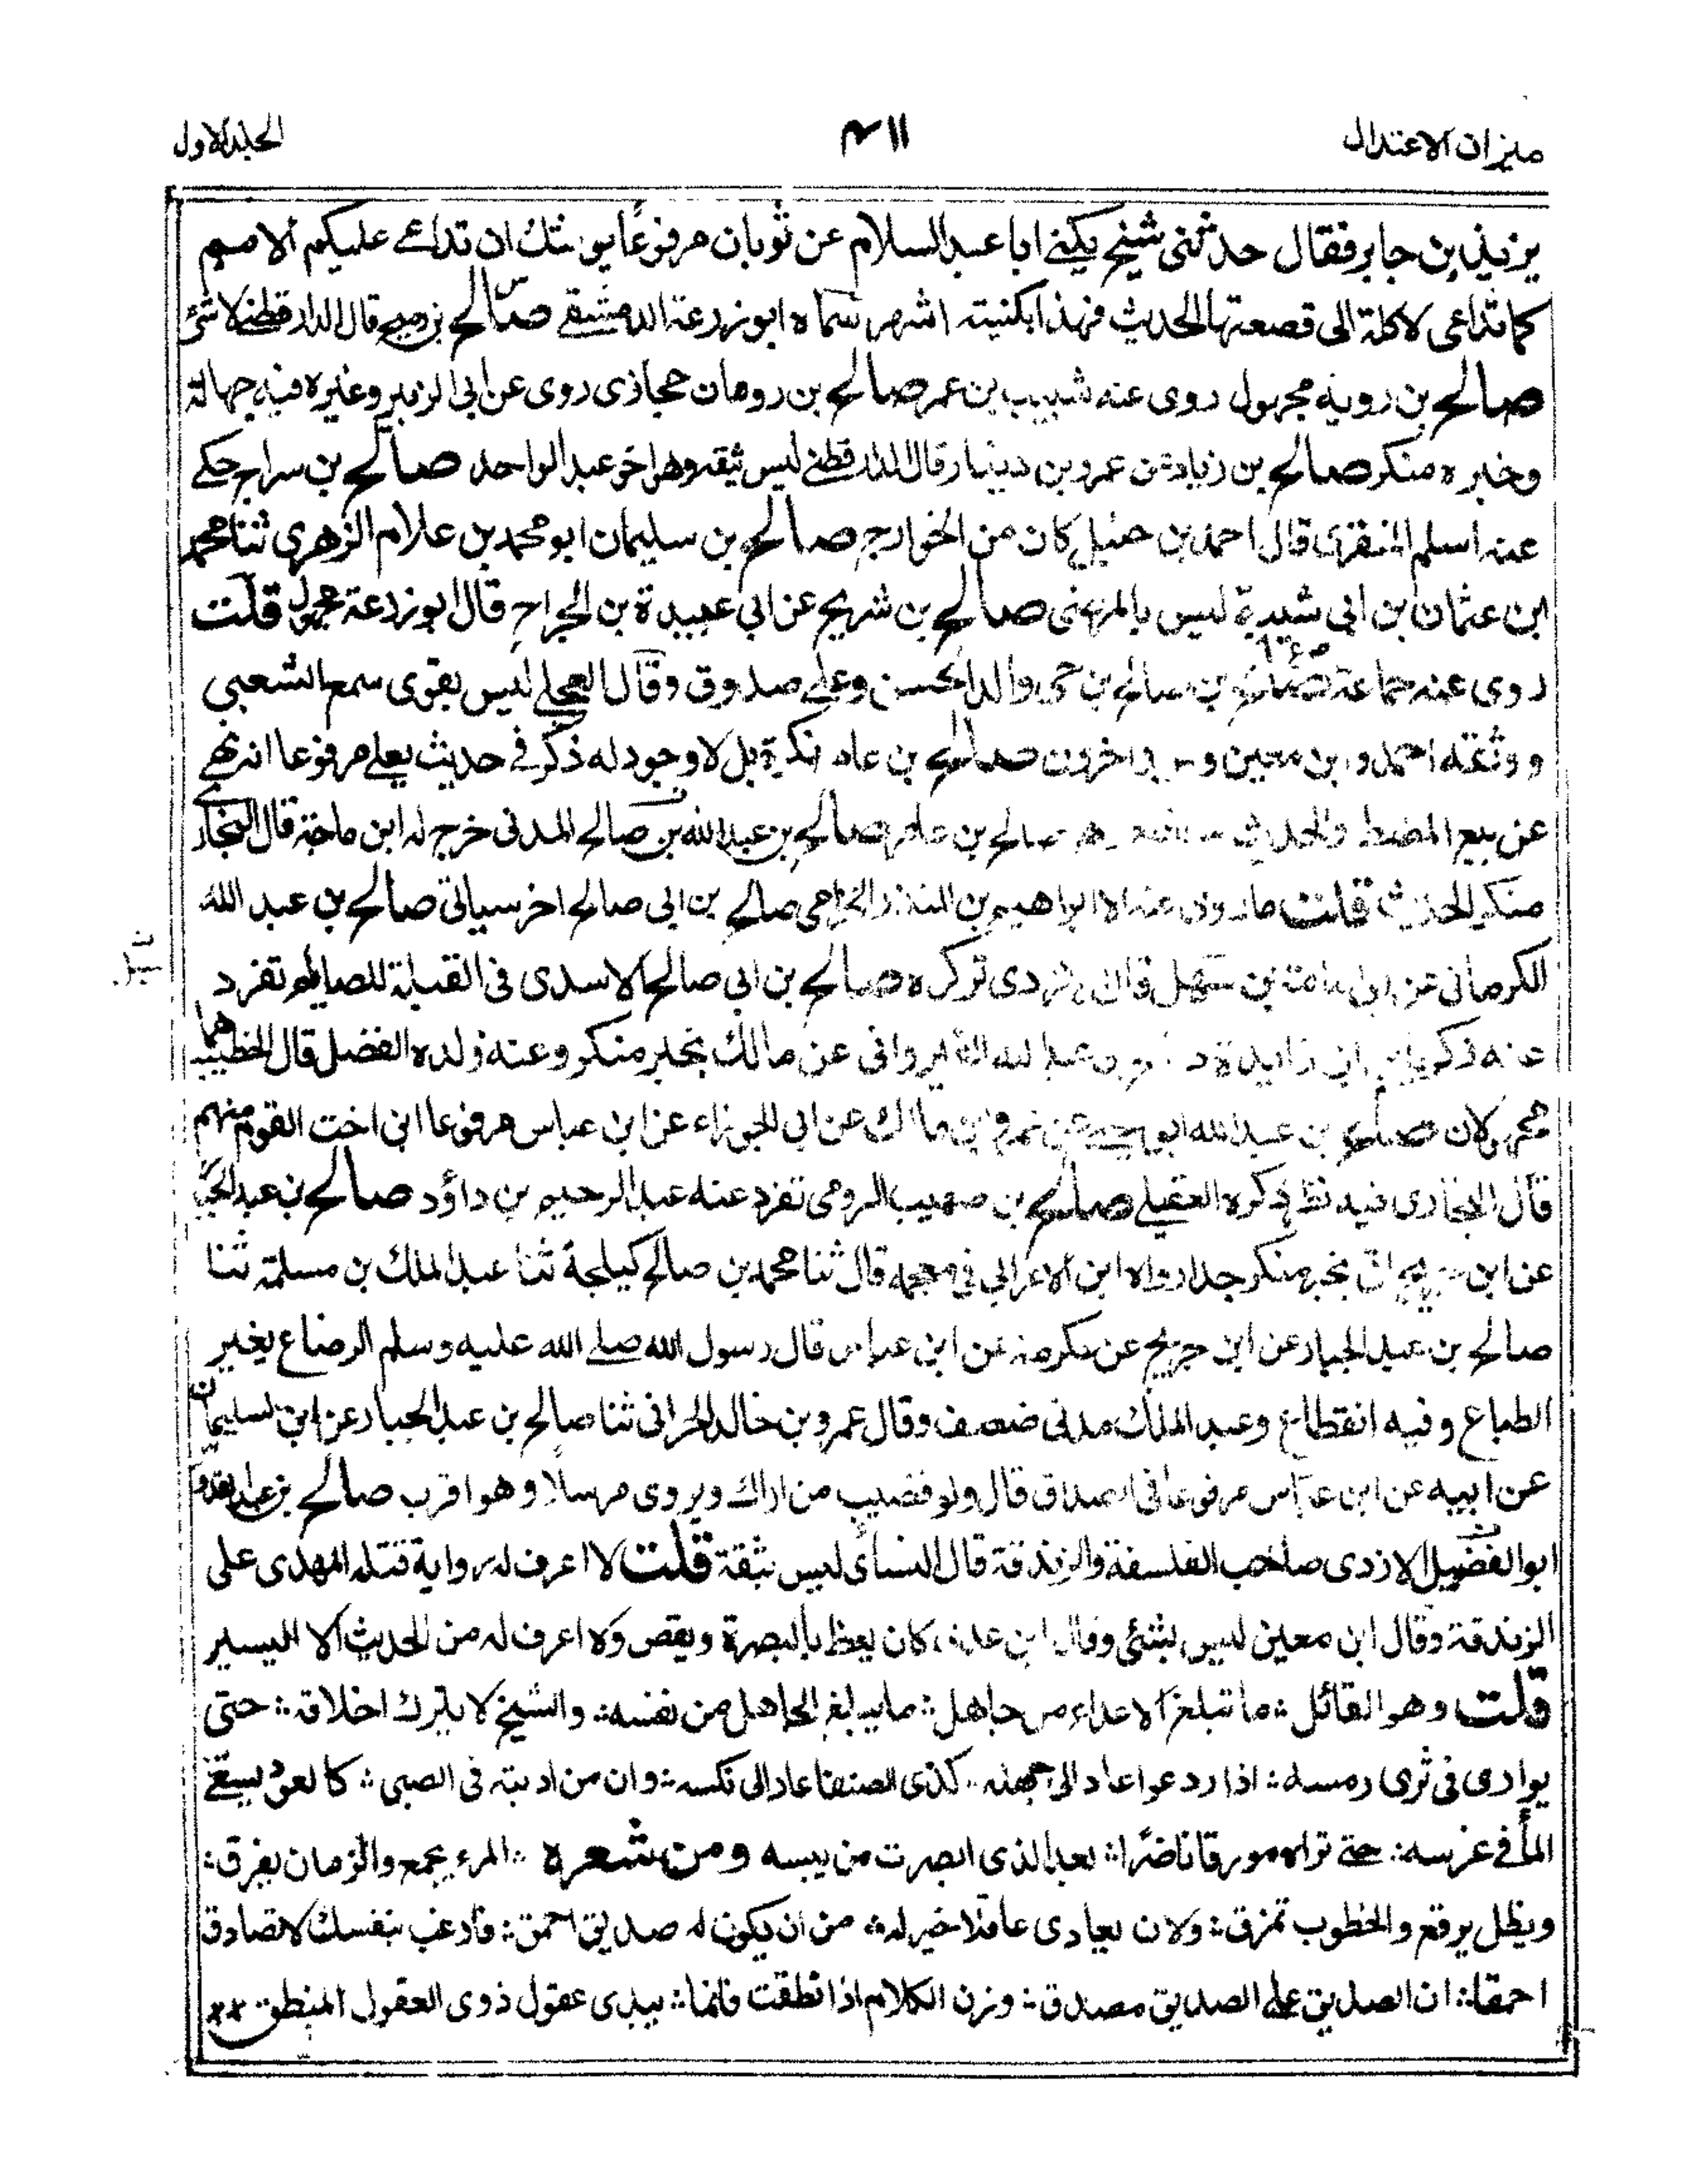 ميزان الاعتدال
الجلد الاول
يزيد بن جابر فقال حدثنى شيخ يكنى ابا عبد السلام عن ثوبان مرفوعًا يوشك ان تداعى عليكم الامم
كما تداعى الاكلة الى قصعتها الحديث فهذا بكنيته اشهر سماه ابو زرعة الدمشقى صالح بن قال الدارقطنى لا شئ
صالح بن روبة مجهول روى عنه شبيب بن عمر صالح بن رومان حجازى روى عن ابى الزبير وغيره فيه جهالة
وخبره منكر صالح بن زياد عن عمرو بن دينار قال الدارقطنى ليس ثقة وهو اخو عبد الواحد صالح بن سراج حكى
عنه اسلم المنقرى قال احمد بن حنبل كان من الخوارج صالح بن سليمان ابو محمد بن علام الزهرى ثنا محمد
ابن عثمان بن ابى شيبة ليس بالمرضى صالح بن شريح عن ابى عبيدة بن الجراح قال ابو زرعة مجهول قلت
روى عنه جماعة صالح بن صالح بن حى والد الحسن وعلى صدوق وقال العجلى ليس بقوى سمع الشعبى
ووثقه احمد وابن معين و اخرون صالح بن عامر نكرة بل لا وجود له ذكر فى حديث يعلى مرفوعا انه نهى
عن بيع المضطر والحديث صالح بن عامر صالح بن عبد الله بن صالح المدنى خرج له ابن ماجة قال البخارى
منكر الحديث قلت ما روى عنه الا ابراهيم بن المنذر الحزامى صالح بن ابى صالح اخر سياتى صالح بن عبد الله
الكرمانى عن ابى امامة بن سهل قال الازدى تركوه صالح بن ابى صالح الاسدى فى القبلة للصائم تفرد
عنه زكريا بن ابى زايدة صالح بن عبد الله القيروانى عن مالك بخبر منكر وعنه ولده الفضل قال الخطيب هما
مجهولان صالح بن عبد الله ابو يحيى عن عمرو بن مالك عن ابى الجوزاء عن ابن عباس مرفوعا ابن اخت القوم منهم
قال البخارى فيه نظر ذكره العقيلى صالح بن صهيب الرومى تفرد عنه عبد الرحيم بن داؤد صالح بن عبد الجبار
عن ابن جريج اتى بخبر منكر جدا رواه ابن الاعرابى فى معجمه قال ثنا محمد بن صالح كيلجة ثنا عبد الملك بن مسلمة ثنا
صالح بن عبد الجبار عن ابن جريج عن عكرمة عن ابن عباس قال رسول الله صلى الله عليه وسلم الرضاع يغير
الطباع وفيه انقطاع وعبد الملك مدنى ضعيف وقال عمرو بن خالد الحرانى ثنا صالح بن عبد الجبار عن ابن السليمان
عن ابيه عن ابن عباس مرفوعا فى الصداق قال ولو قضيب من اراك ويروى مرسلًا وهو اقرب صالح بن عبد القدوس
ابو الفضل الازدى صاحب الفلسفة والزندقة قال النسائى ليس بثقة قلت لا اعرف له رواية قتله المهدى على
الزندقة وقال ابن معين ليس بشئ وقال ابن عدى كان يعظ بالبصرة ويقص ولا اعرف له من الحديث الا اليسير
قلت وهو القائل ؛ ما تبلغ الاعداء من جاهل ؛ ما يبلغ الجاهل من نفسه ؛ والشيخ لا يترك اخلاقه ؛ حتى
يوارى فى ثرى رمسه ؛ اذا ارعوا عاد الى جهله ؛ كذى الضنا عاد الى نكسه ؛ وان من ادبته فى الصبى ؛ كالعود يسقى
الماء فى غرسه ؛ حتى تراه مورقا ناضرًا ؛ بعد الذى ابصرت من يبسه ومن شعره ؛ المرء يجمع والزمان يفرق ؛
ويظل يرقع والخطوب تمزق ؛ ولان يعادى عاقلًا خير له ؛ من ان يكون له صديق احمق ؛ فارغب بنفسك لا تصادق
احمقا ؛ ان الصديق على الصديق مصدق ؛ وزن الكلام اذا نطقت فانما ؛ يبدى عقول ذوى العقول المنطق